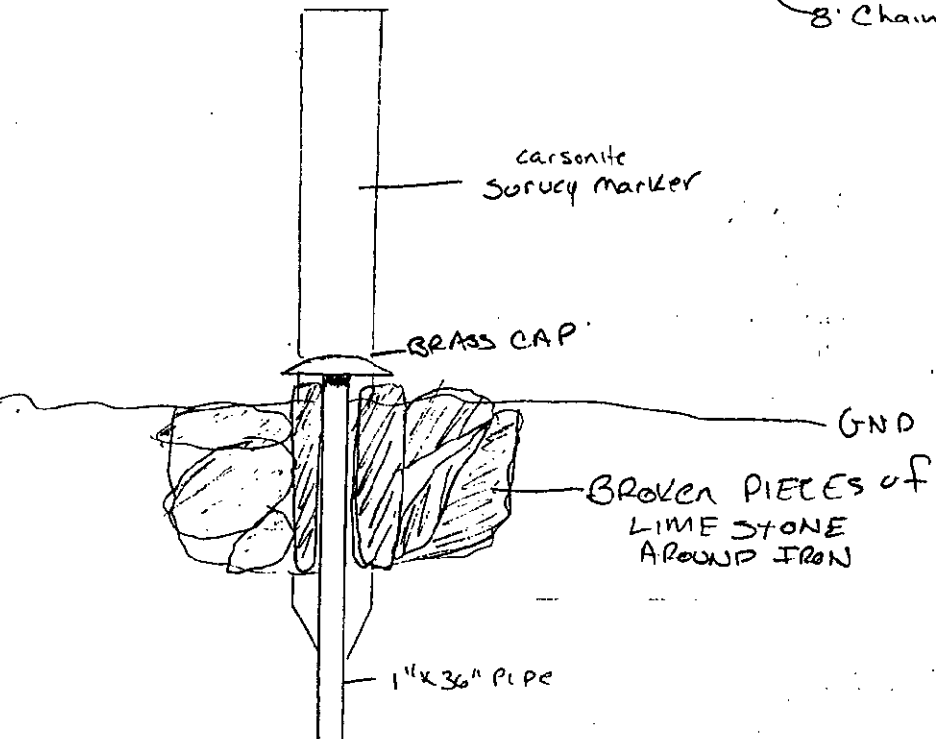 8' Chain
carsonite
Survey marker
BRASS CAP
GND
BROKEN PIECES of
LIME STONE
AROUND IRON
1" x 36" PIPE